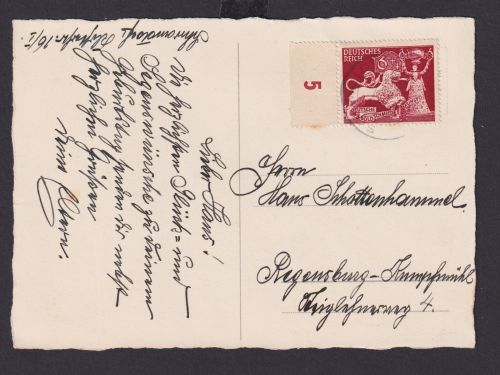 Lieber Hans!
Die herzlichsten Glück= und
Segenswünsche zu deinem
Geburtstag senden dir nebst
herzlichen Grüßen
deine Eltern.
5
DEUTSCHES
REICH
6
Herrn
Hans Schottenhammel.
Regensburg-Kumpfmühl
4.